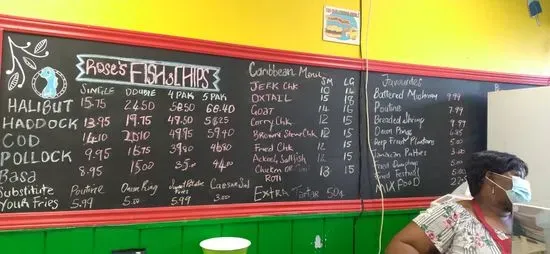 Rose's FISH & CHIPS
SINGLE DOUBLE 4 PAK 5 PAK
HALIBUT 15.75 24.50 58.50 68.40
HADDOCK 13.95 19.75 47.50 58.25
COD 14.10 20.10 49.95 59.40
POLLOCK 9.95 16.75 39.80 46.80
Basa 8.95 15.00 35.00 44.00
Substitute Poutine Onion Ring Sweet Potatoe Fries Caesar Sal
Your Fries 5.99 5.50 5.99
Caribbean Menu SM LG
JERK Chk 10 15
OXTAIL 15 18
GOAT 14 16
Curry Chk 12 15
Brown Stew Chk 12 15
Fried Chk 12 15
Ackee & Saltfish 12 15
Chicken Roti 13 15
EXTRA Tartar 50¢
Favourites
Battered Mushroom 9.99
Poutine 7.99
Breaded Shrimp 9.99
Onion Rings
Deep Fried Plantains 5.00
Jamaican Patties 3.00
Fried Dumpling
Fried Festival
MIX FOOD